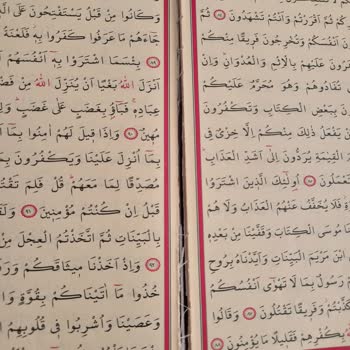 ثُمَّ اَقْرَرْتُمْ وَاَنْتُمْ تَشْهَدُونَ ﴿٨٤﴾ ثُمَّ
اَنْفُسَكُمْ وَتُخْرِجُونَ فَرِيقًا مِنْكُمْ
عَلَيْهِمْ بِالْاِثْمِ وَالْعُدْوَانِ وَاِنْ
تُفَادُوهُمْ وَهُوَ مُحَرَّمٌ عَلَيْكُمْ
بِبَعْضِ الْكِتَابِ وَتَكْفُرُونَ
يَفْعَلُ ذٰلِكَ مِنْكُمْ اِلَّا خِزْىٌ فِى
الْقِيٰمَةِ يُرَدُّونَ اِلٰٓى اَشَدِّ الْعَذَابِ
تَعْمَلُونَ ﴿٨٥﴾ اُولٰٓئِكَ الَّذِينَ اشْتَرَوُا
فَلَا يُخَفَّفُ عَنْهُمُ الْعَذَابُ وَلَا هُمْ
مُوسَى الْكِتَابَ وَقَفَّيْنَا مِنْ بَعْدِهِ
ابْنَ مَرْيَمَ الْبَيِّنَاتِ وَاَيَّدْنَاهُ بِرُوحِ
رَسُولٌ بِمَا لَا تَهْوٰٓى اَنْفُسُكُمُ
كَذَّبْتُمْ وَفَرِيقًا تَقْتُلُونَ ﴿٨٧﴾ وَقَالُوا
بِكُفْرِهِمْ فَقَلِيلًا مَا يُؤْمِنُونَ ﴿٨٨﴾
وَكَانُوا مِنْ قَبْلُ يَسْتَفْتِحُونَ عَلَى
جَٓاءَهُمْ مَا عَرَفُوا كَفَرُوا بِهِ فَلَعْنَةُ
﴿٨٩﴾ بِئْسَمَا اشْتَرَوْا بِهِ اَنْفُسَهُمْ
اَنْزَلَ اللهُ بَغْيًا اَنْ يُنَزِّلَ اللهُ مِنْ
عِبَادِهِ فَبَٓاؤُ بِغَضَبٍ عَلٰى غَضَبٍ
مُهِينٌ ﴿٩٠﴾ وَاِذَا قِيلَ لَهُمْ اٰمِنُوا بِمَٓا
بِمَٓا اُنْزِلَ عَلَيْنَا وَيَكْفُرُونَ
مُصَدِّقًا لِمَا مَعَهُمْ قُلْ فَلِمَ
قَبْلُ اِنْ كُنْتُمْ مُؤْمِنِينَ ﴿٩١﴾ وَلَقَدْ
بِالْبَيِّنَاتِ ثُمَّ اتَّخَذْتُمُ الْعِجْلَ مِنْ
﴿٩٢﴾ وَاِذْ اَخَذْنَا مِيثَاقَكُمْ
خُذُوا مَٓا اٰتَيْنَاكُمْ بِقُوَّةٍ
وَعَصَيْنَا وَاُشْرِبُوا فِى قُلُوبِهِمُ